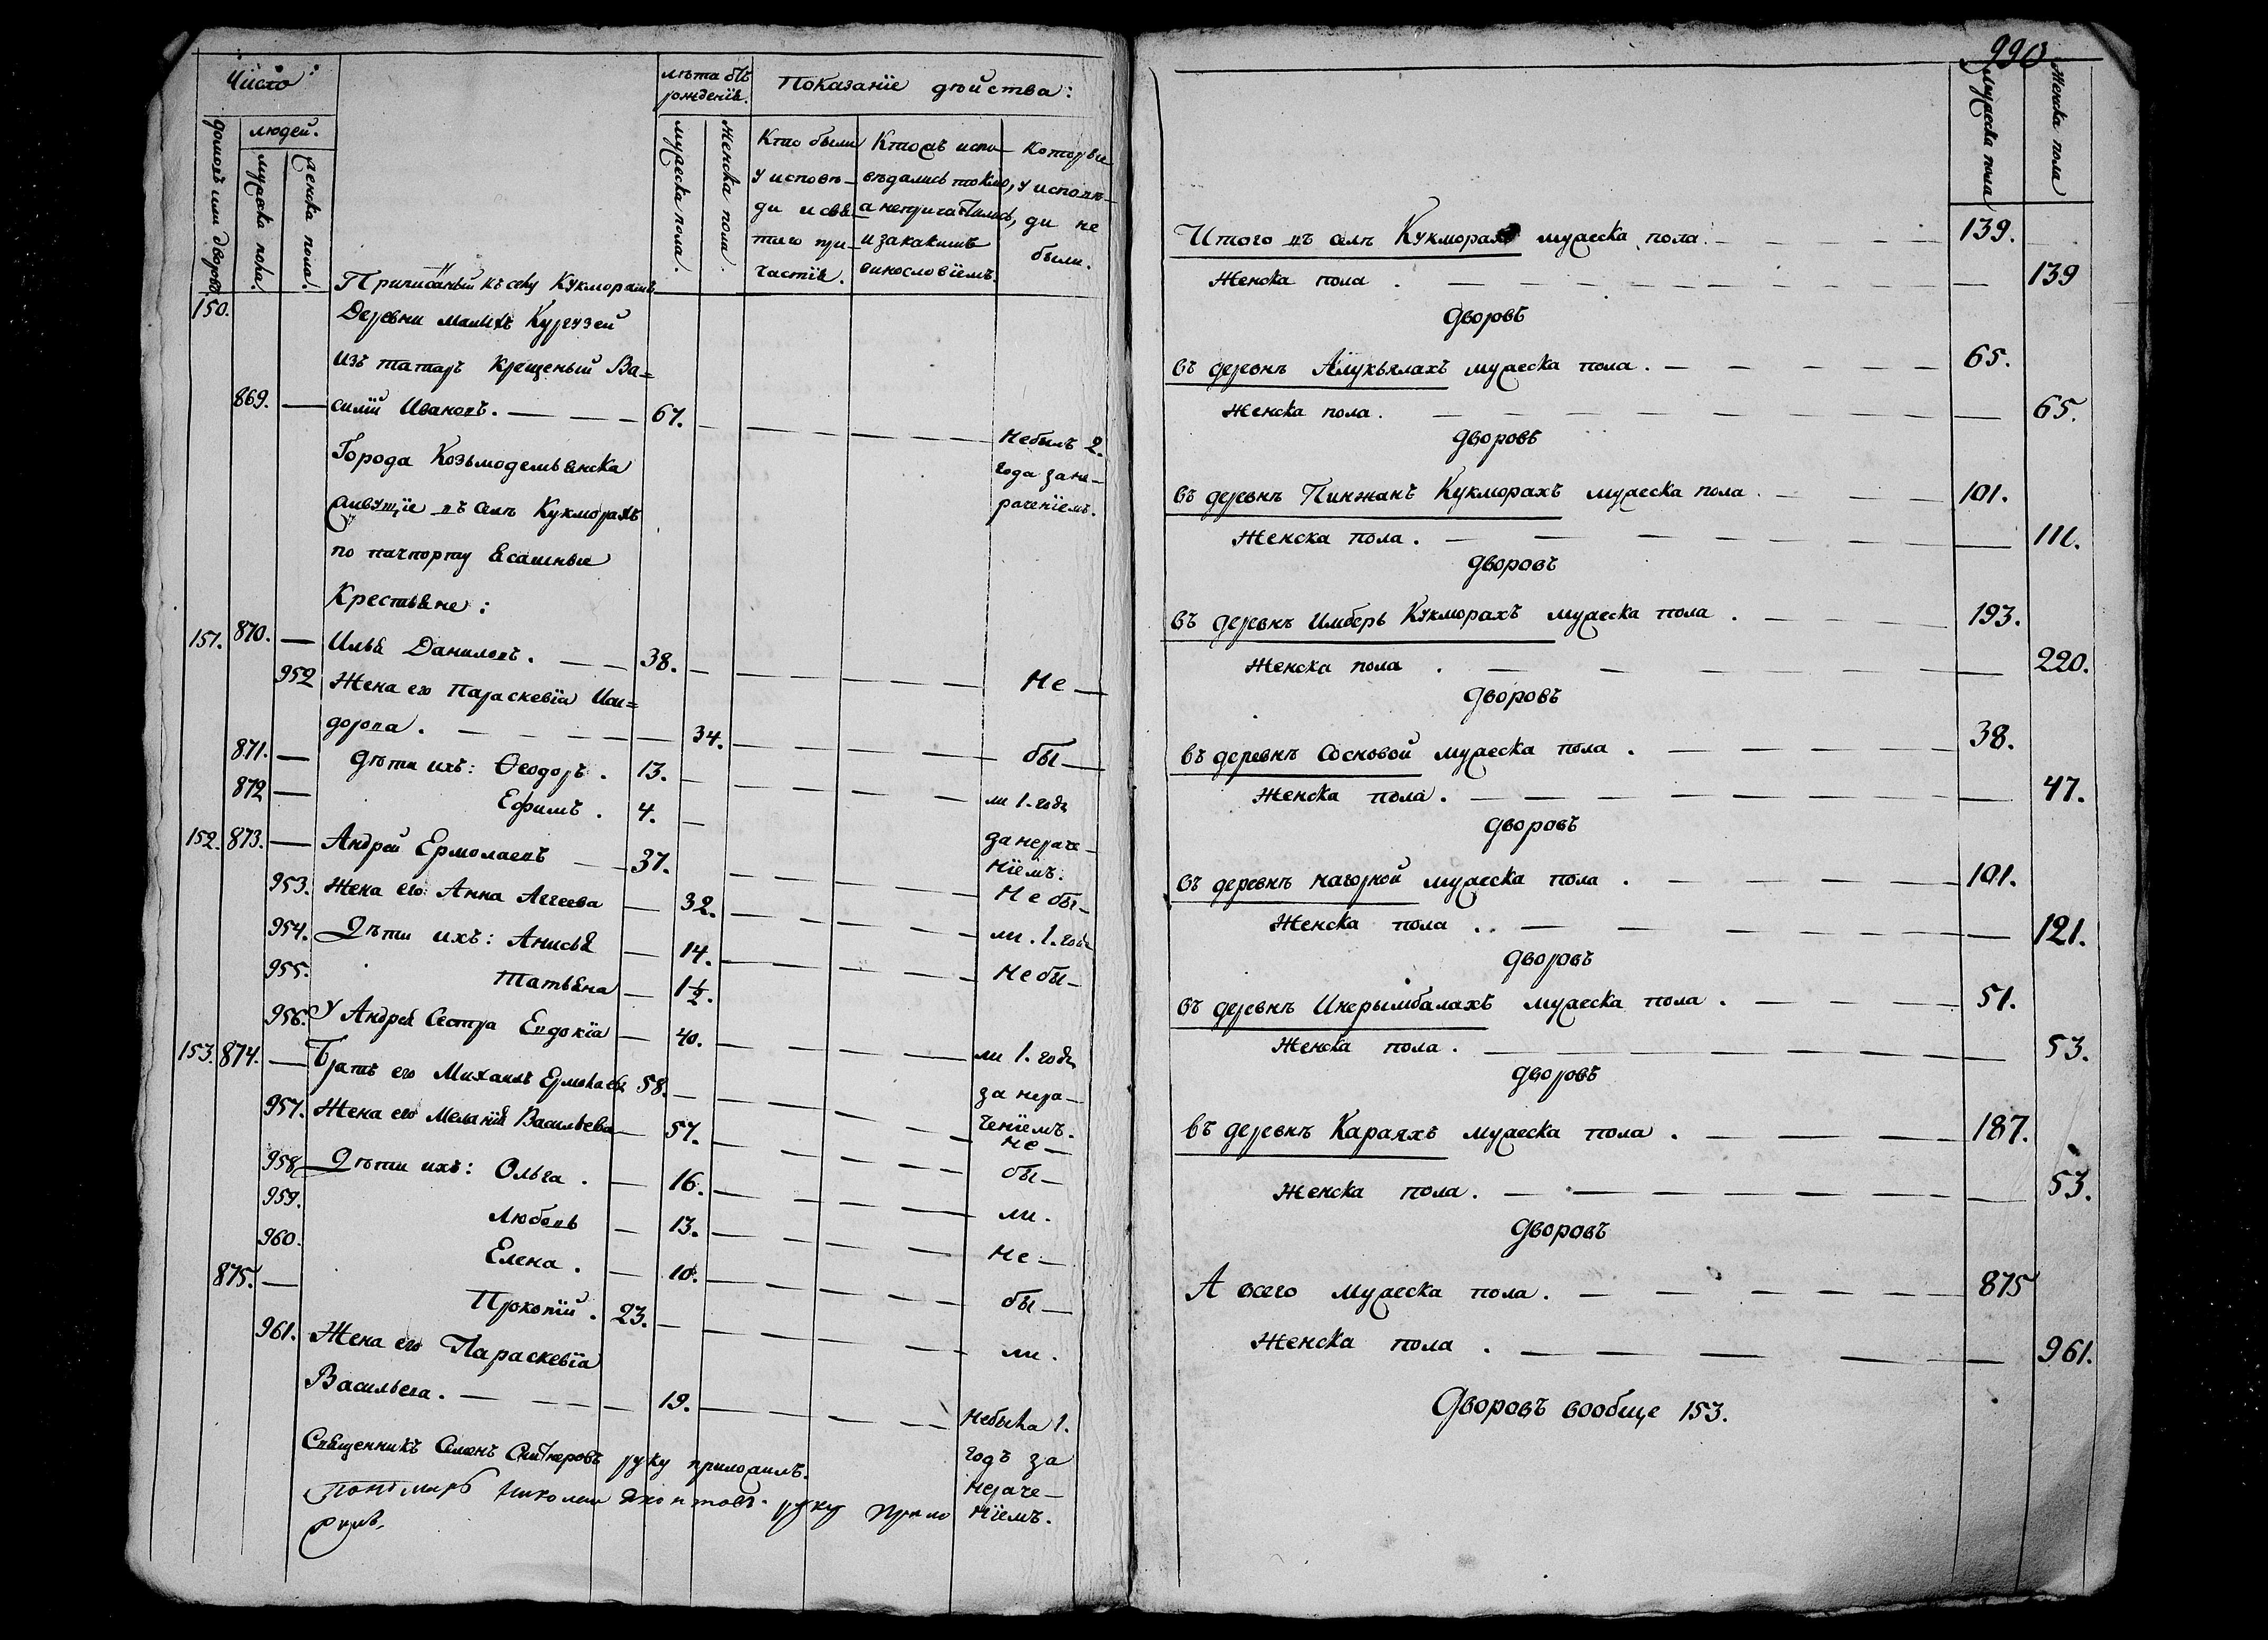 Число
людей.
домовъ или дворовъ.
мужеска пола.
женска пола.
лѣта отъ
рожденїя.
мужеска пола.
женска пола.
Показанїе дѣйства:
Кто были
у исповѣ-
ди и свя-
таго при-
частїя.
Кто жъ испо-
вѣдались токмо,
а непричастились,
и закакимъ
винословїемъ.
Которые
у исповѣ-
ди не
были.
Приписанный къ селу Кукморамъ
150. Деревни малыхъ Кургузей
изъ татаръ крещеный Ва=
869. — силїй Ивановъ. — — — 67. — — — — Небылъ 2.
года зане-
раченїемъ.
Города Козьмодемьянска
живущїе въ селѣ Кукморахъ
по пачпорту Ясашные
Крестьяне:
151. 870. — Илья Даниловъ. — — 38. — — — — Не —
952 Жена его Параскевїа Иси=
дорова. — — — — 34. — — — бы —
871. — Дѣти ихъ: Ѳеодоръ. 13. — — — — ли 1. годъ
872 — Ефимъ. 4. —
за нераче-
нїемъ.
152. 873. — Андрей Ермолаевъ — 37. — — — Не бы-
953. Жена его Анна Агеева — 32. — — — ли. 1. годъ
954. Дѣти ихъ: Анисья — 14. — — — Не бы-
955. Татьяна — 1½.
956. У Андрея Сестра Евдокїа — 40. — — — ли 1. годъ
153. 874. — Братъ его Михаилъ Ермолаевъ 58. — — — за нера-
ченїемъ.
957. Жена его Меланїя Васильева — 57. — — — не —
958 Дѣти ихъ: Ольга. — 16. — — — бы —
959. Любовь — 13. — — — ли.
960. Елена. — 10. — — — Не —
875. — Прокопїй. 23. — — — бы —
961. Жена его Параскевїа
ли.
Васильева. — — — 19. — — — Небыла 1.
годъ за
нераче-
нїемъ.
Священникъ Симеонъ руку приложилъ.
Пономарь Николай руку прило
жилъ.
990
Мужеска пола
Женска пола
Итого въ селѣ Кукморахъ мужеска пола. — — — — 139.
Женска пола. — — — — — — 139
Дворовъ
въ деревнѣ мужеска пола. — — — — 65.
Женска пола. — — — — — — 65.
Дворовъ
въ деревнѣ Пинжанъ Кукморахъ мужеска пола. — — — 101.
Женска пола. — — — — — — 111.
Дворовъ
въ деревнѣ Имберь Кукморахъ мужеска пола. — — — — 193.
Женска пола. — — — — — — 220.
Дворовъ
въ деревнѣ Сосновой мужеска пола. — — — — 38.
Женска пола. — — — — — — 47.
Дворовъ
въ деревнѣ нагорной мужеска пола. — — — — 101.
Женска пола.. — — — — — 121.
Дворовъ
въ деревнѣ Инерымбалахъ мужеска пола. — — — — 51.
Женска пола. — — — — — — 53.
Дворовъ
въ деревнѣ Караяхъ мужеска пола. — — — — 187.
Женска пола. — — — — — — 53.
Дворовъ
А всего мужеска пола. — — — — — 875
Женска пола. — — — — — 961.
Дворовъ вообще 153.